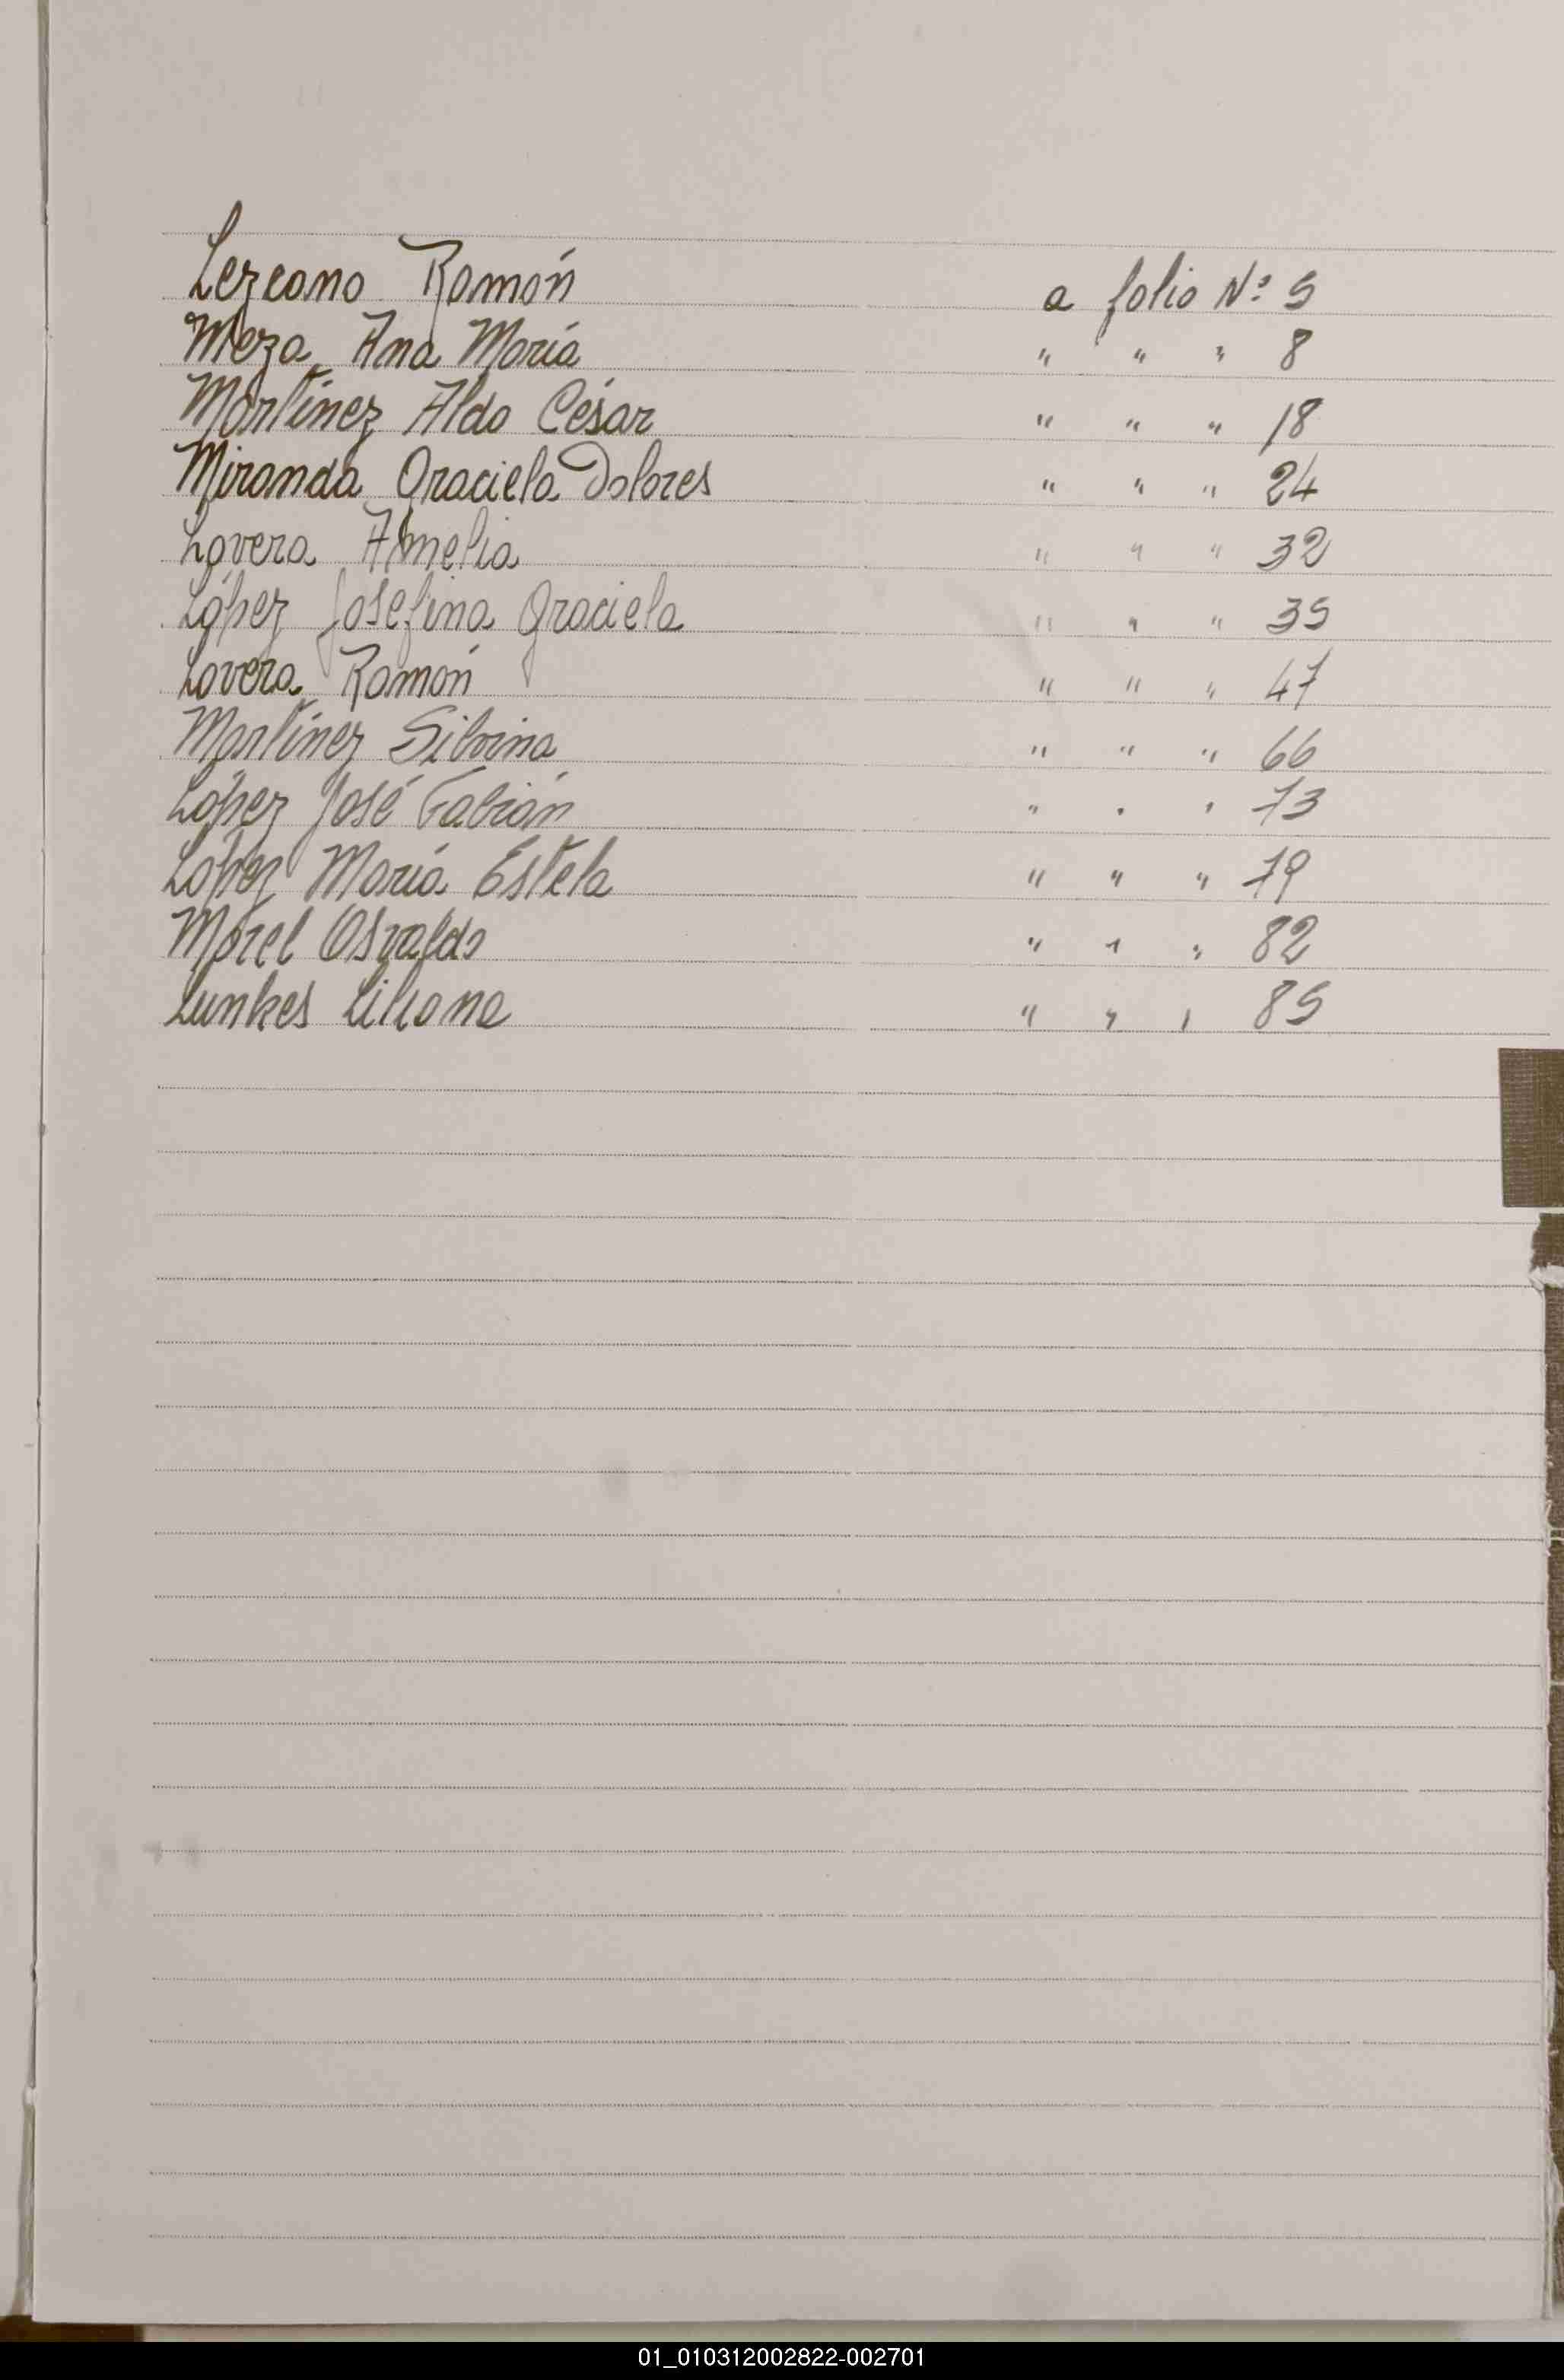 Lezcano Ramón a folio Nº 5
Meza Ana María " " " 8
Martínez Aldo César " " " 18
Miranda Graciela Dolores " " " 24
Lovera Amelia " " " 32
López Josefina Graciela " " " 35
Lovera Ramón " " " 47
Martínez Silvina " " " 66
López José Fabián " " " 73
López María Estela " " " 79
Morel Osvaldo " " " 82
Lunkes Liliana " " " 85
01_010312002822-002701